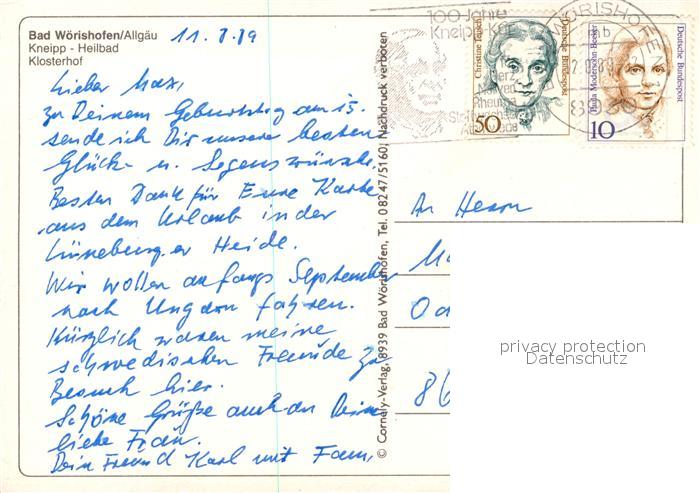 Bad Wörishofen/Allgäu
Kneipp - Heilbad
Klosterhof
11.8.89
Lieber Max,
zu Deinem Geburtstag am 15.
sende ich Dir unsere besten
Glück- u. Segenswünsche.
Besten Dank für Eure Karte
aus dem Urlaub in der
Lüneburger Heide.
Wir wollen anfangs September
nach Ungarn fahren.
Kürzlich waren meine
schwedischen Freunde zu
Besuch hier.
Schöne Grüße auch an Deine
liebe Frau.
Dein Freund Karl mit Fam.
© Cornely-Verlag, 8939 Bad Wörishofen, Tel. 08247/5160, Nachdruck verboten
100 Jahre
Kneipp
WÖRISHOFEN
Christine Teusch
Deutsche Bundespost
50
Paula Modersohn-Becker
Deutsche Bundespost
10
An Herrn
86
privacy protection
Datenschutz